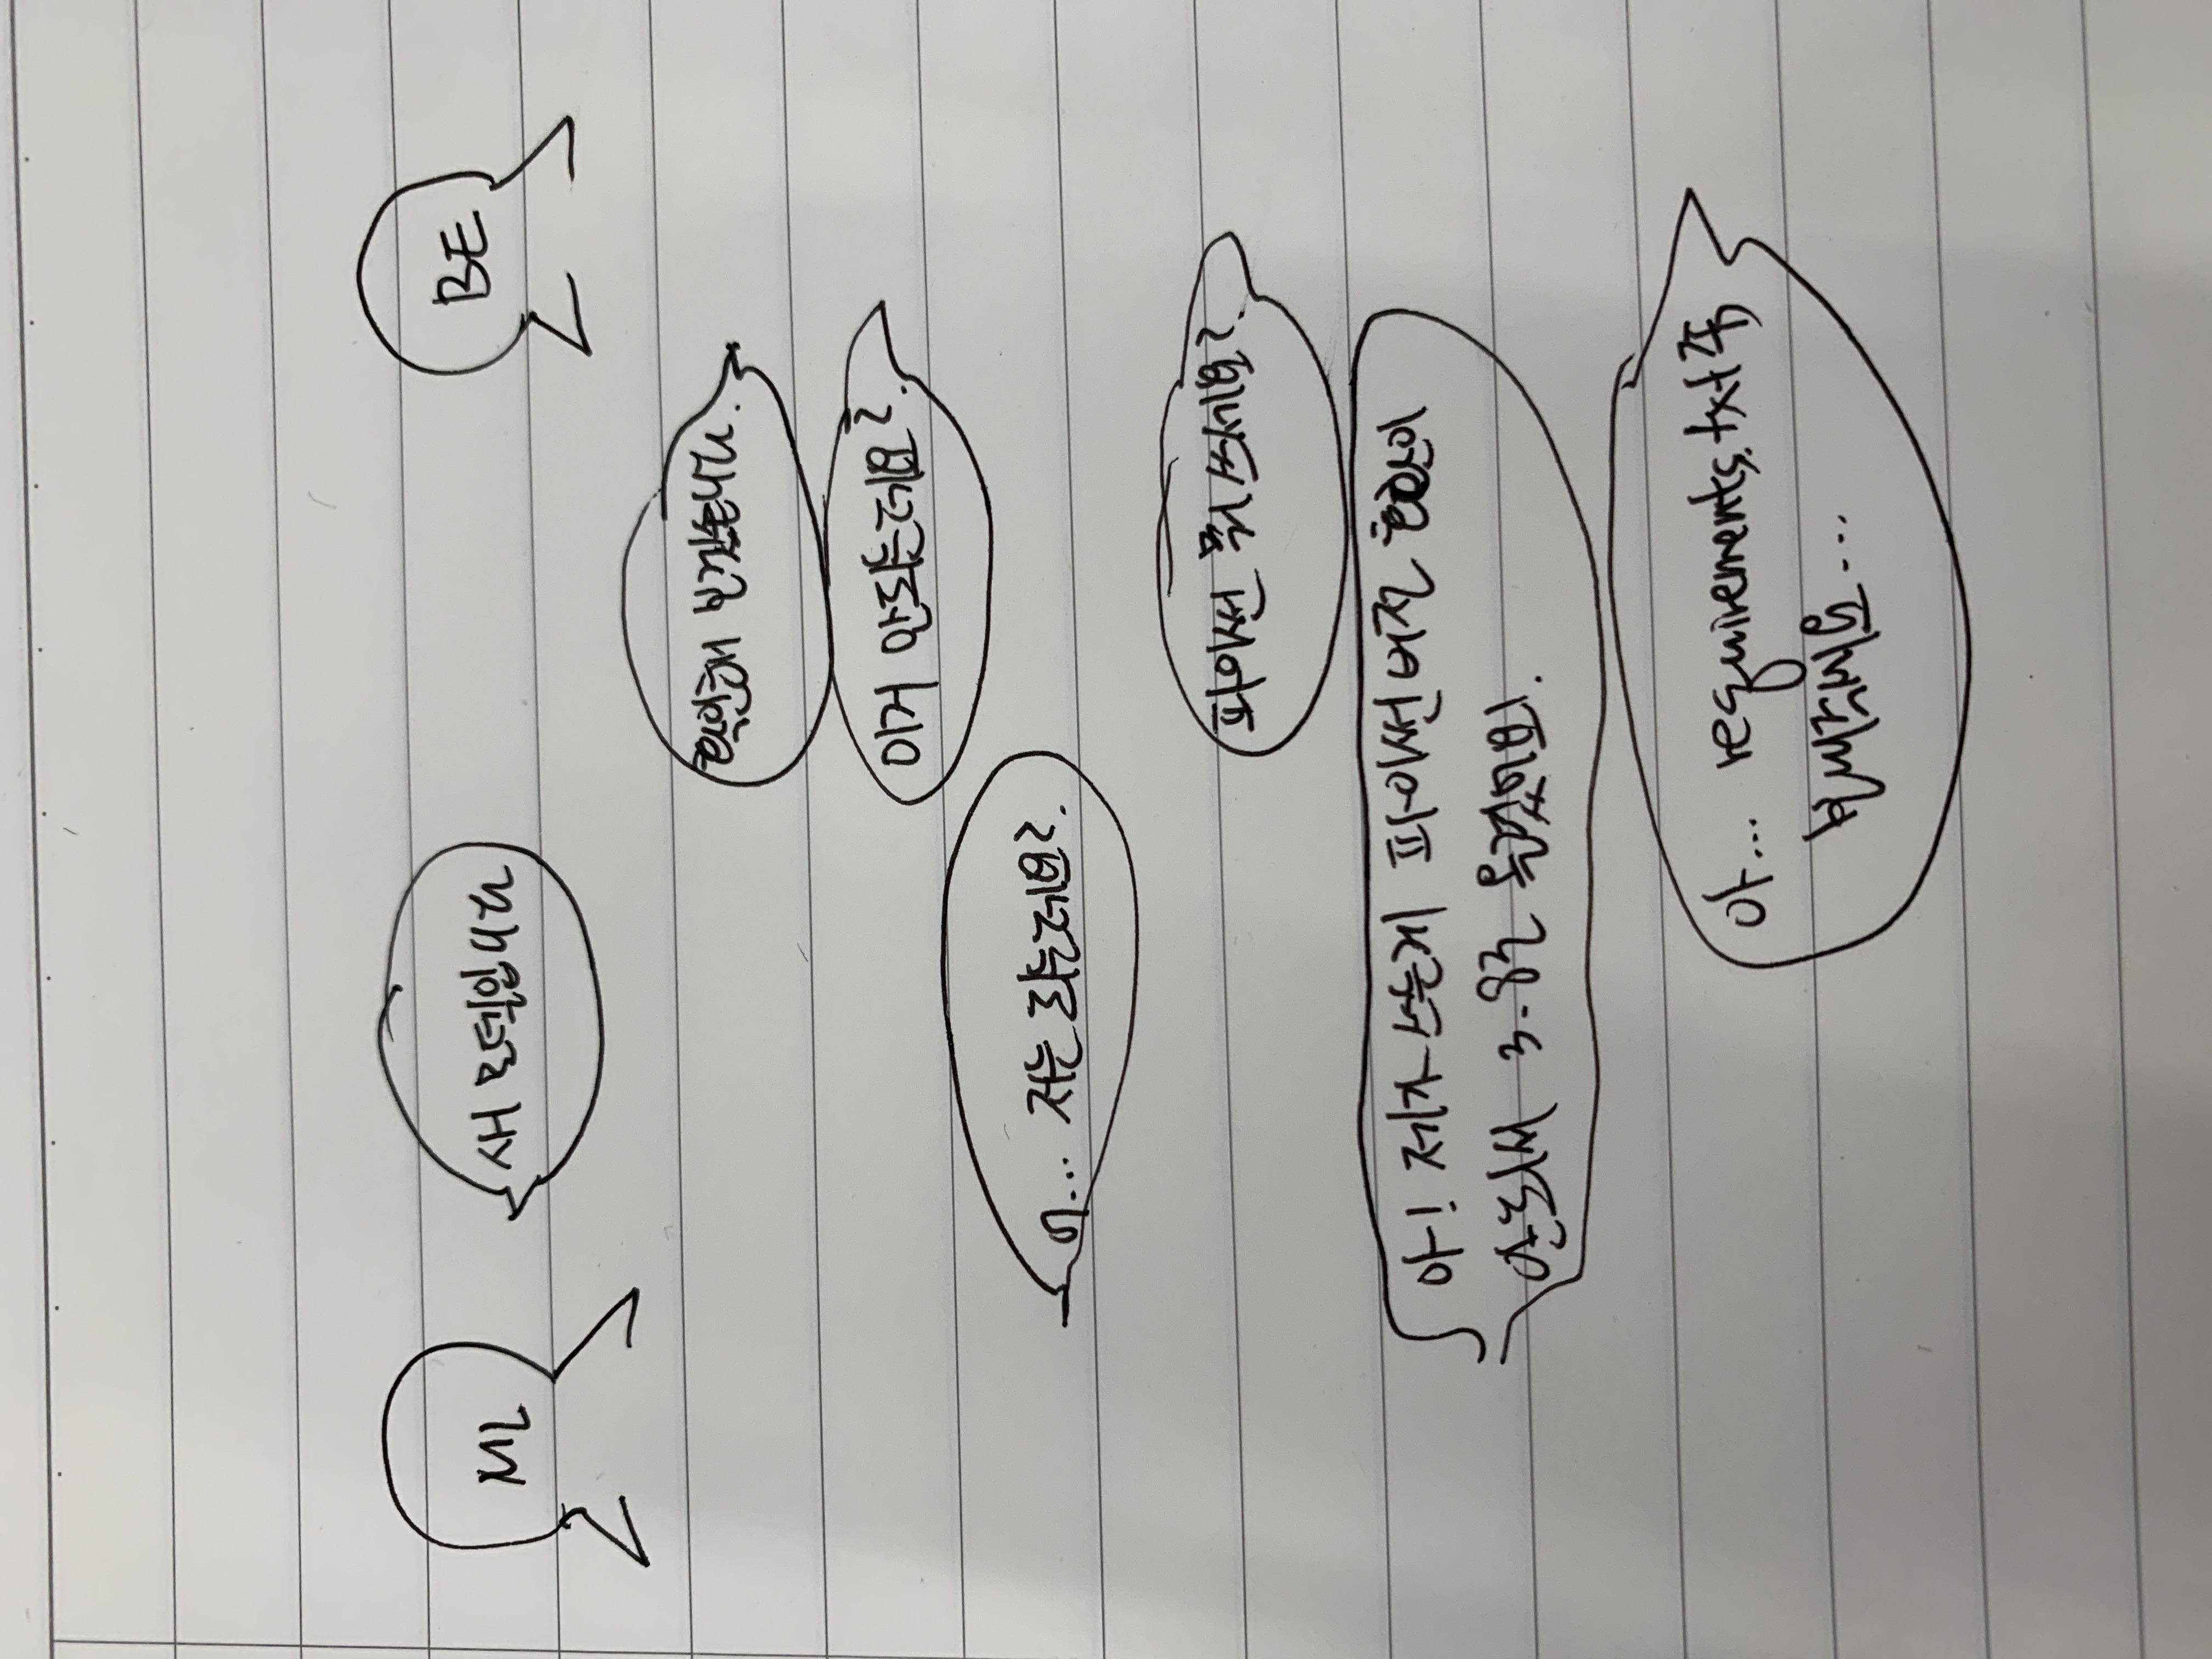 ML
새 모델입니다
BE
확인해 보겠습니다.
이거 안되는데요?
어... 저는 되는데요?
파이썬 뭐 쓰세요?
아! 제가 쓰는게 파이썬 버전 호환이
안되서 3.8로 옮겼어요!
아... requirements.txt 쫌
보내주세요...